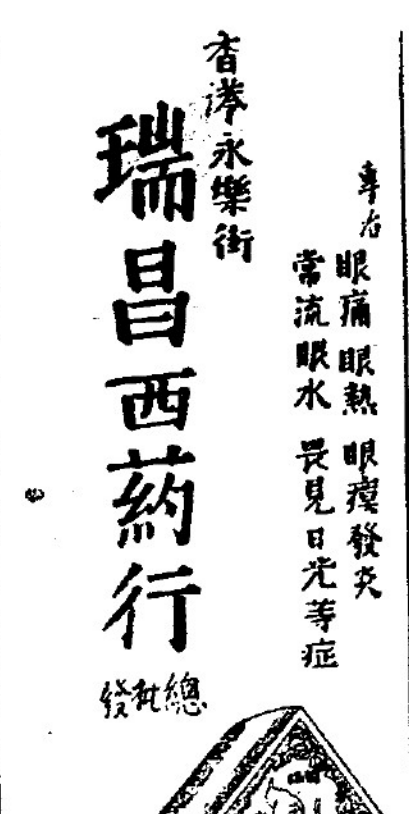 專治
眼痛眼熱 眼瘼發炎
常流眼水 畏見日光等症
香港永樂街
瑞昌西葯行
總批發